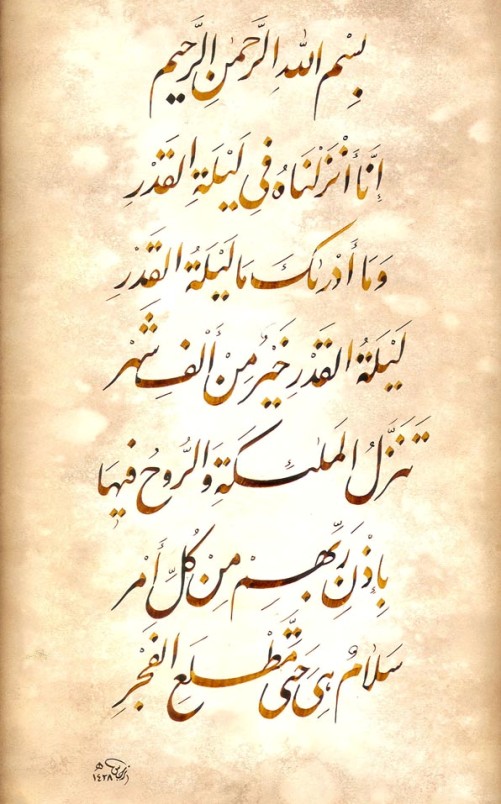 بِسْمِ اللهِ الرَّحمٰنِ الرَّحیم
إِنَّا أَنْزَلْنَاهُ فِي لَيْلَةِ القَدْرِ
وَمَا أَدْرٰىكَ مَا لَيْلَةُ القَدْرِ
لَيْلَةُ القَدْرِ خَيْرٌ مِنْ أَلْفِ شَهْرٍ
تَنَزَّلُ المَلٰئِكَةُ وَالرُّوحُ فِيهَا
بِإِذْنِ رَبِّهِمْ مِنْ كُلِّ أَمْرٍ
سَلَامٌ هِيَ حَتّٰى مَطْلَعِ الفَجْرِ
١٤٢٨ ھ